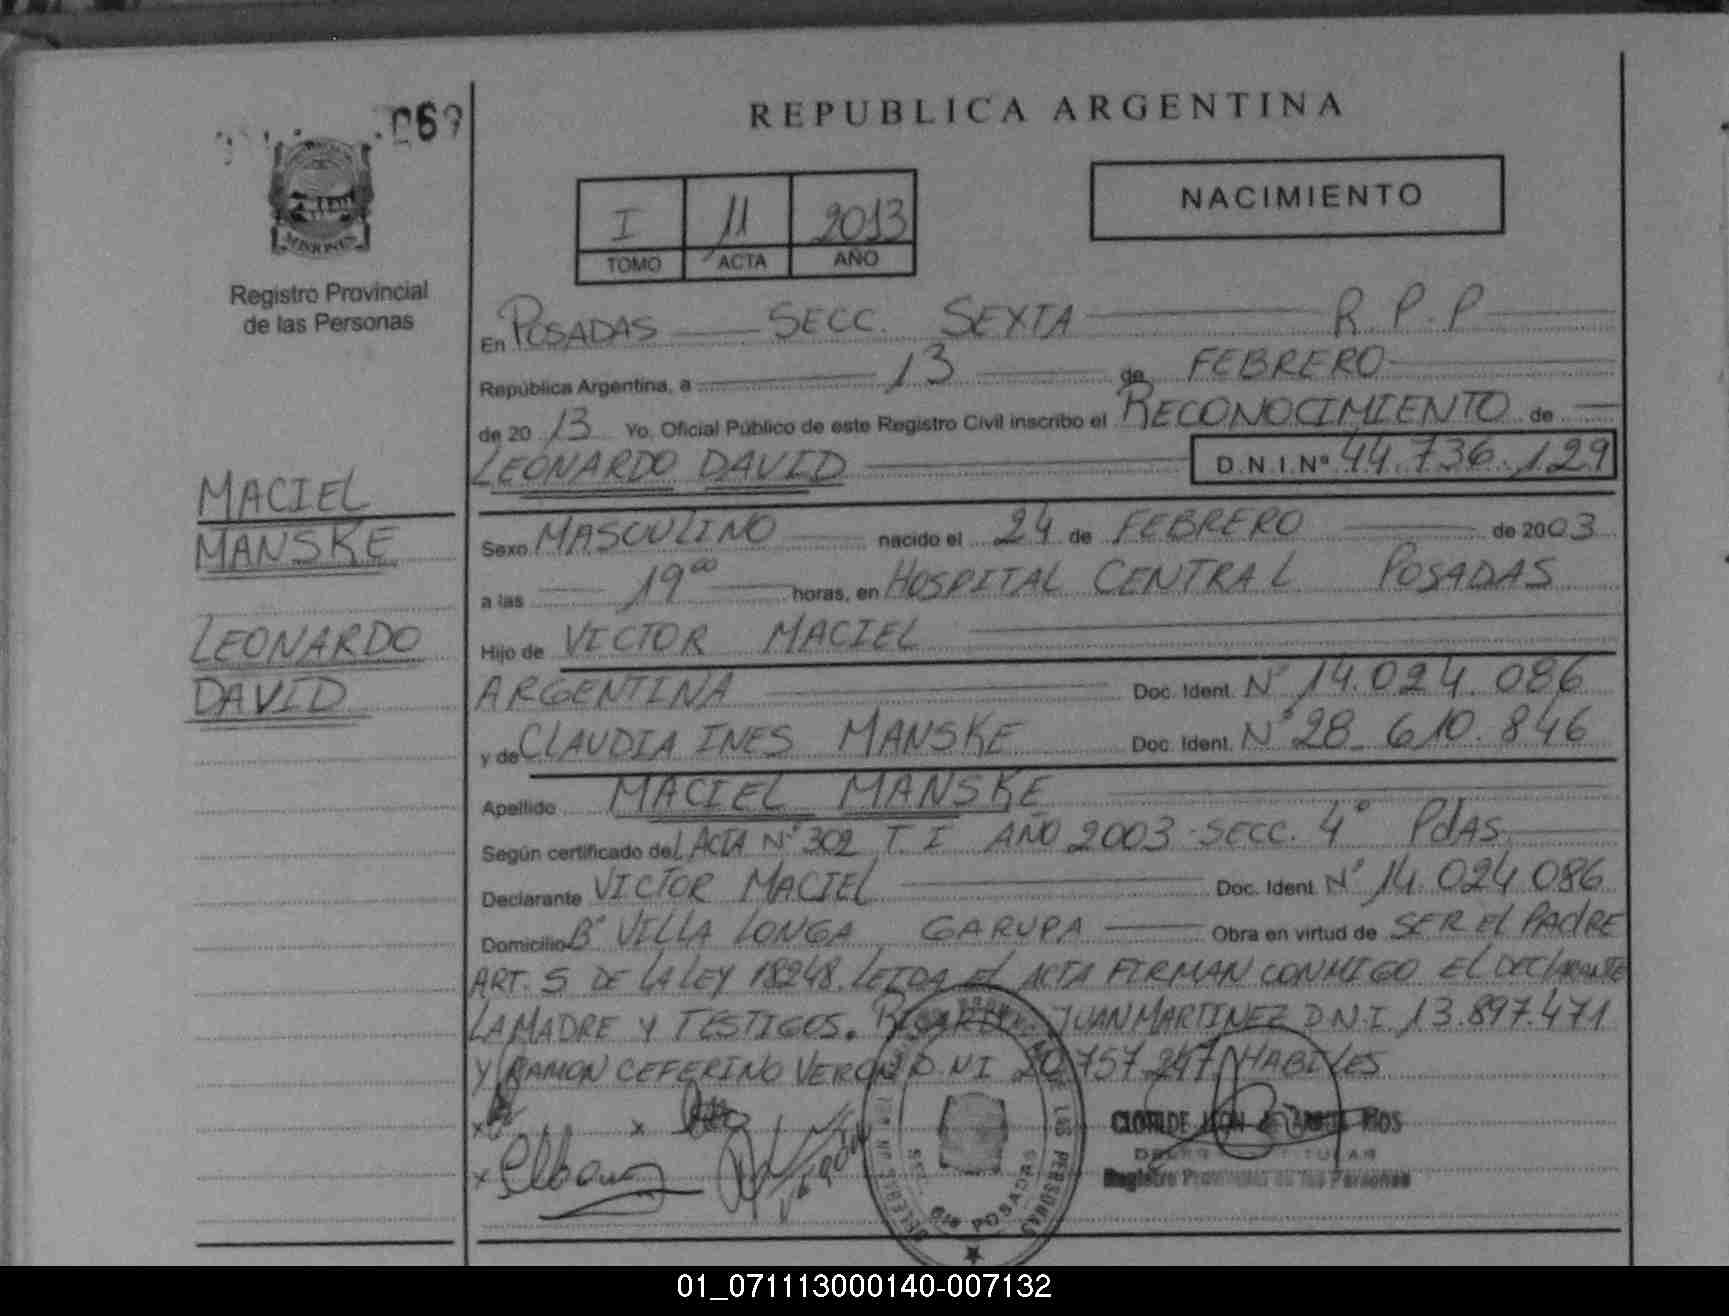 069
REPUBLICA ARGENTINA
MISIONES
Registro Provincial
de las Personas
I 11 2013
TOMO ACTA AÑO
NACIMIENTO
En POSADAS SECC. SEXTA R.P.P
República Argentina, a 13 de FEBRERO
de 20 13 Yo, Oficial Público de este Registro Civil inscribo el RECONOCIMIENTO de
LEONARDO DAVID D.N.I.Nº 44.736.129
MACIEL
MANSKE
LEONARDO
DAVID
Sexo MASCULINO nacido el 24 de FEBRERO de 2003
a las 19 00 horas, en HOSPITAL CENTRAL POSADAS
Hijo de VICTOR MACIEL
ARGENTINA Doc. Ident. Nº 14.024.086
y de CLAUDIA INES MANSKE Doc. Ident. Nº 28.610.846
Apellido MACIEL MANSKE
Según certificado del ACTA Nº 302 T. I AÑO 2003 SECC. 4º PdAS.
Declarante VICTOR MACIEL Doc. Ident. Nº 14.024.086
Domicilio Bº VILLA LONGA GARUPA Obra en virtud de SER El PAdRE
ART. 5 DE LA LEY 18248. LEIDA EL ACTA FIRMAN CONMIGO EL DECLARANTE
LA MADRE Y TESTIGOS. JUAN MARTINEZ D.N.I. 13.897.471
Y RAMON CEFERINO VERON D.NI 20.757.247 HABILES
x x
x
LAS PERSONAS
6ta POSADAS
CLOTILDE RIOS
TITULAR
Registro Provincial de las Personas
01_071113000140-007132